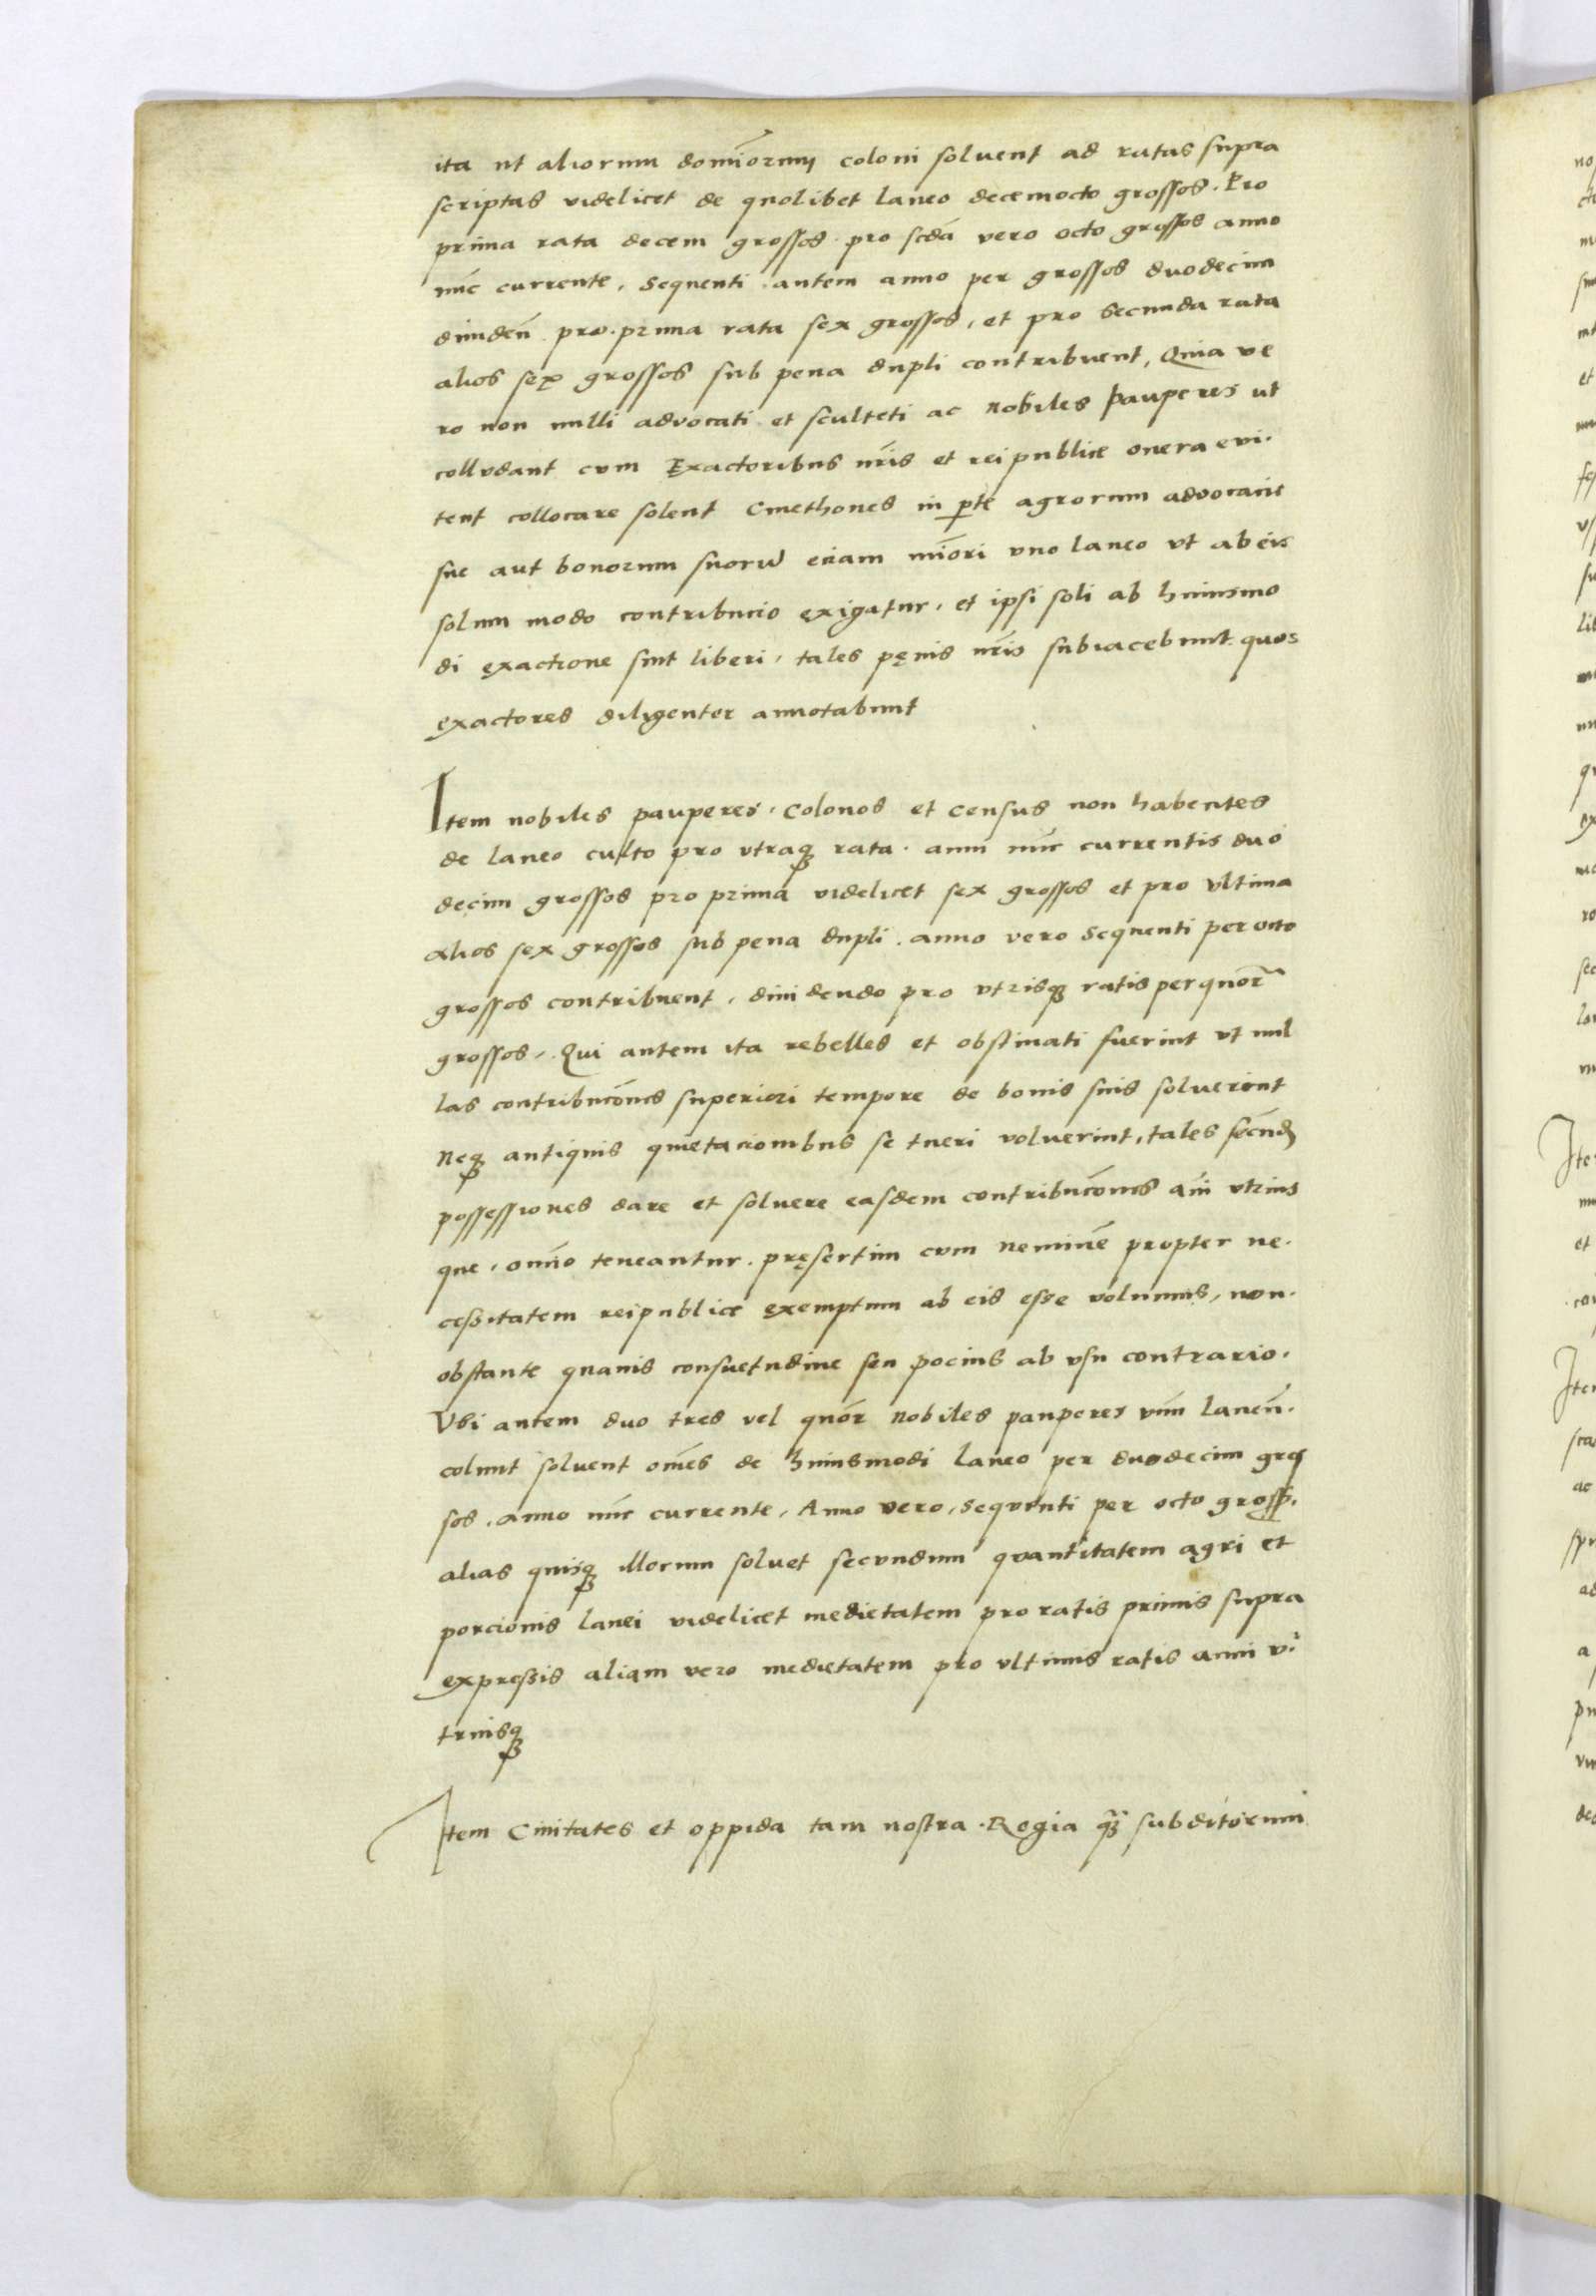 ita ut aliorum domiorum coloni solvent ad ratas supra
scriptas videlicet de quolibet laneo decemocto grossos. Pro
prima rata decem grossos. pro scda vero octo grossos anno
nuc currente, sequenti autem anno per grossos duodecim
diuiden pro. prima rata sex grossos, et pro secunda rata
alios sex grossos sub pena dupli contribuent, Quia ve
ro non nulli advocati et sculteti ac nobiles pauperes ut
colludant cum Exactoribus nris et reipublice onera evi.
tent collocare solent Cmethones in pte agrorum advocacie
sue aut bonorum suoru eciam miori vno laneo vt ab eis
solum modo contribucio exigatur, et ipsi soli ab huiusmo
di exactione sint liberi, tales pęnis nris subiacebunt quos
exactores diligenter annotabunt
Item nobiles pauperes, colonos et census non habentes
de laneo culto pro vtraq rata. anni nuc currentis duo
decim grossos pro prima videlicet sex grossos et pro vltima
alios sex grossos sub pena dupli. anno vero sequenti per octo
grossos contribuent, diuidendo pro vtrisq ratis per quor
grossos, Qui autem ita rebelles et obstinati fuerint vt nul
las contribucoes superiori tempore de bonis suis soluerint
neq antiquis quietacionibus se tueri voluerint, tales secund
possessiones dare et soluere easdem contribucoes ani vtrius
que, omio teneantur. pręsertim cum nemine propter ne.
cessitatem reipublice exemptum ab eis esse volumus, non.
obstante quauis consuetudine seu pocius ab vsu contrario.
Vbi autem duo tres vel quor nobiles pauperes vnu laneu.
colunt soluent omes de huiusmodi laneo per duodecim gros
sos. anno nuc currente, Anno vero, sequenti per octo gross.
alias quisq illorum soluet secundum quantitatem agri et
porcionis lanei videlicet medietatem pro ratis primis supra
expressis aliam vero medietatem pro vltimis ratis anni v.
triusq
Item Ciuitates et oppida tam nostra. Regia q subditorum